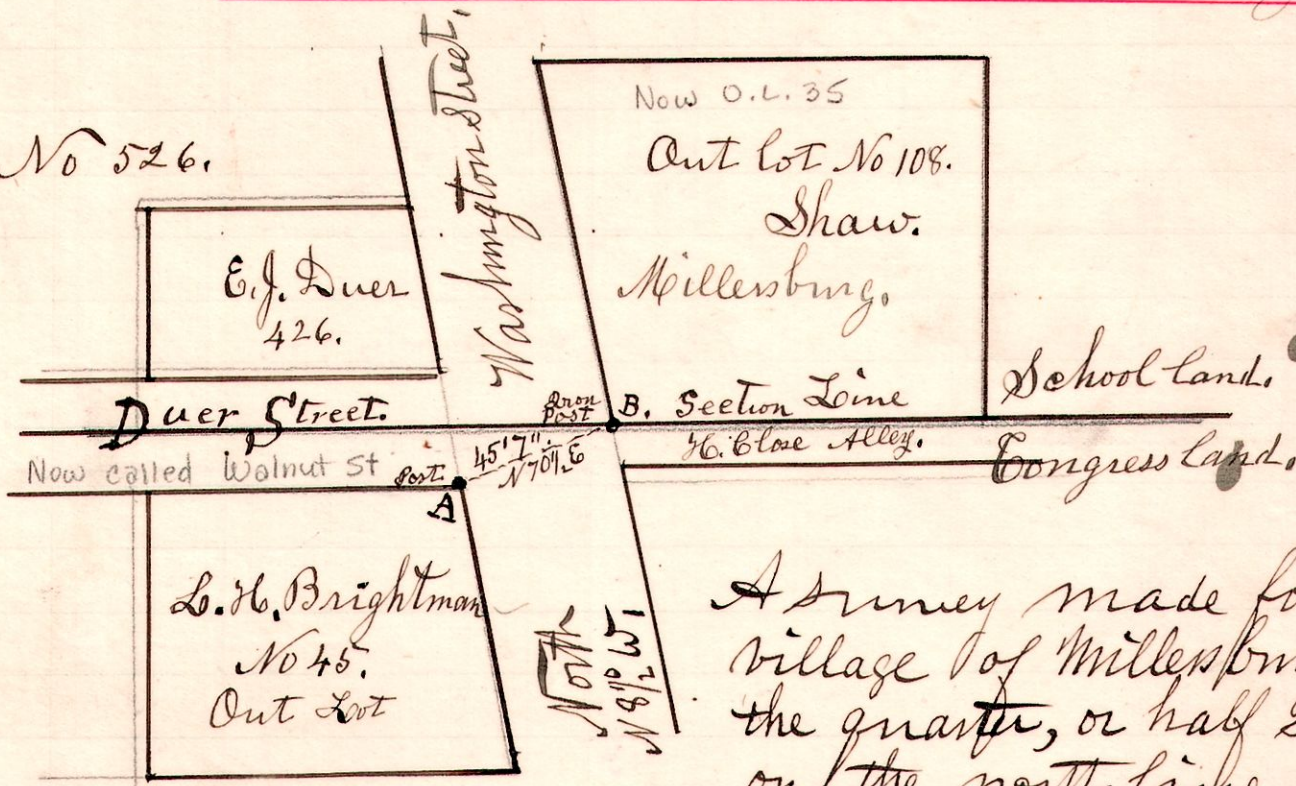 No 526.
Washington Street.
Now O.L. 35
Out lot No 108.
Shaw.
Millersburg.
E. J. Duer
426.
School land.
Duer Street.
Iron
Post
B. Section Line
H. Close Alley.
Congress land.
Now called Walnut St
Post.
45' 7"
N 70½ E
A
L. H. Brightman
No 45.
Out Lot
North
N 8½° W.
A survey made fo
village of Millersbur
the quarter, or half S
on the north line